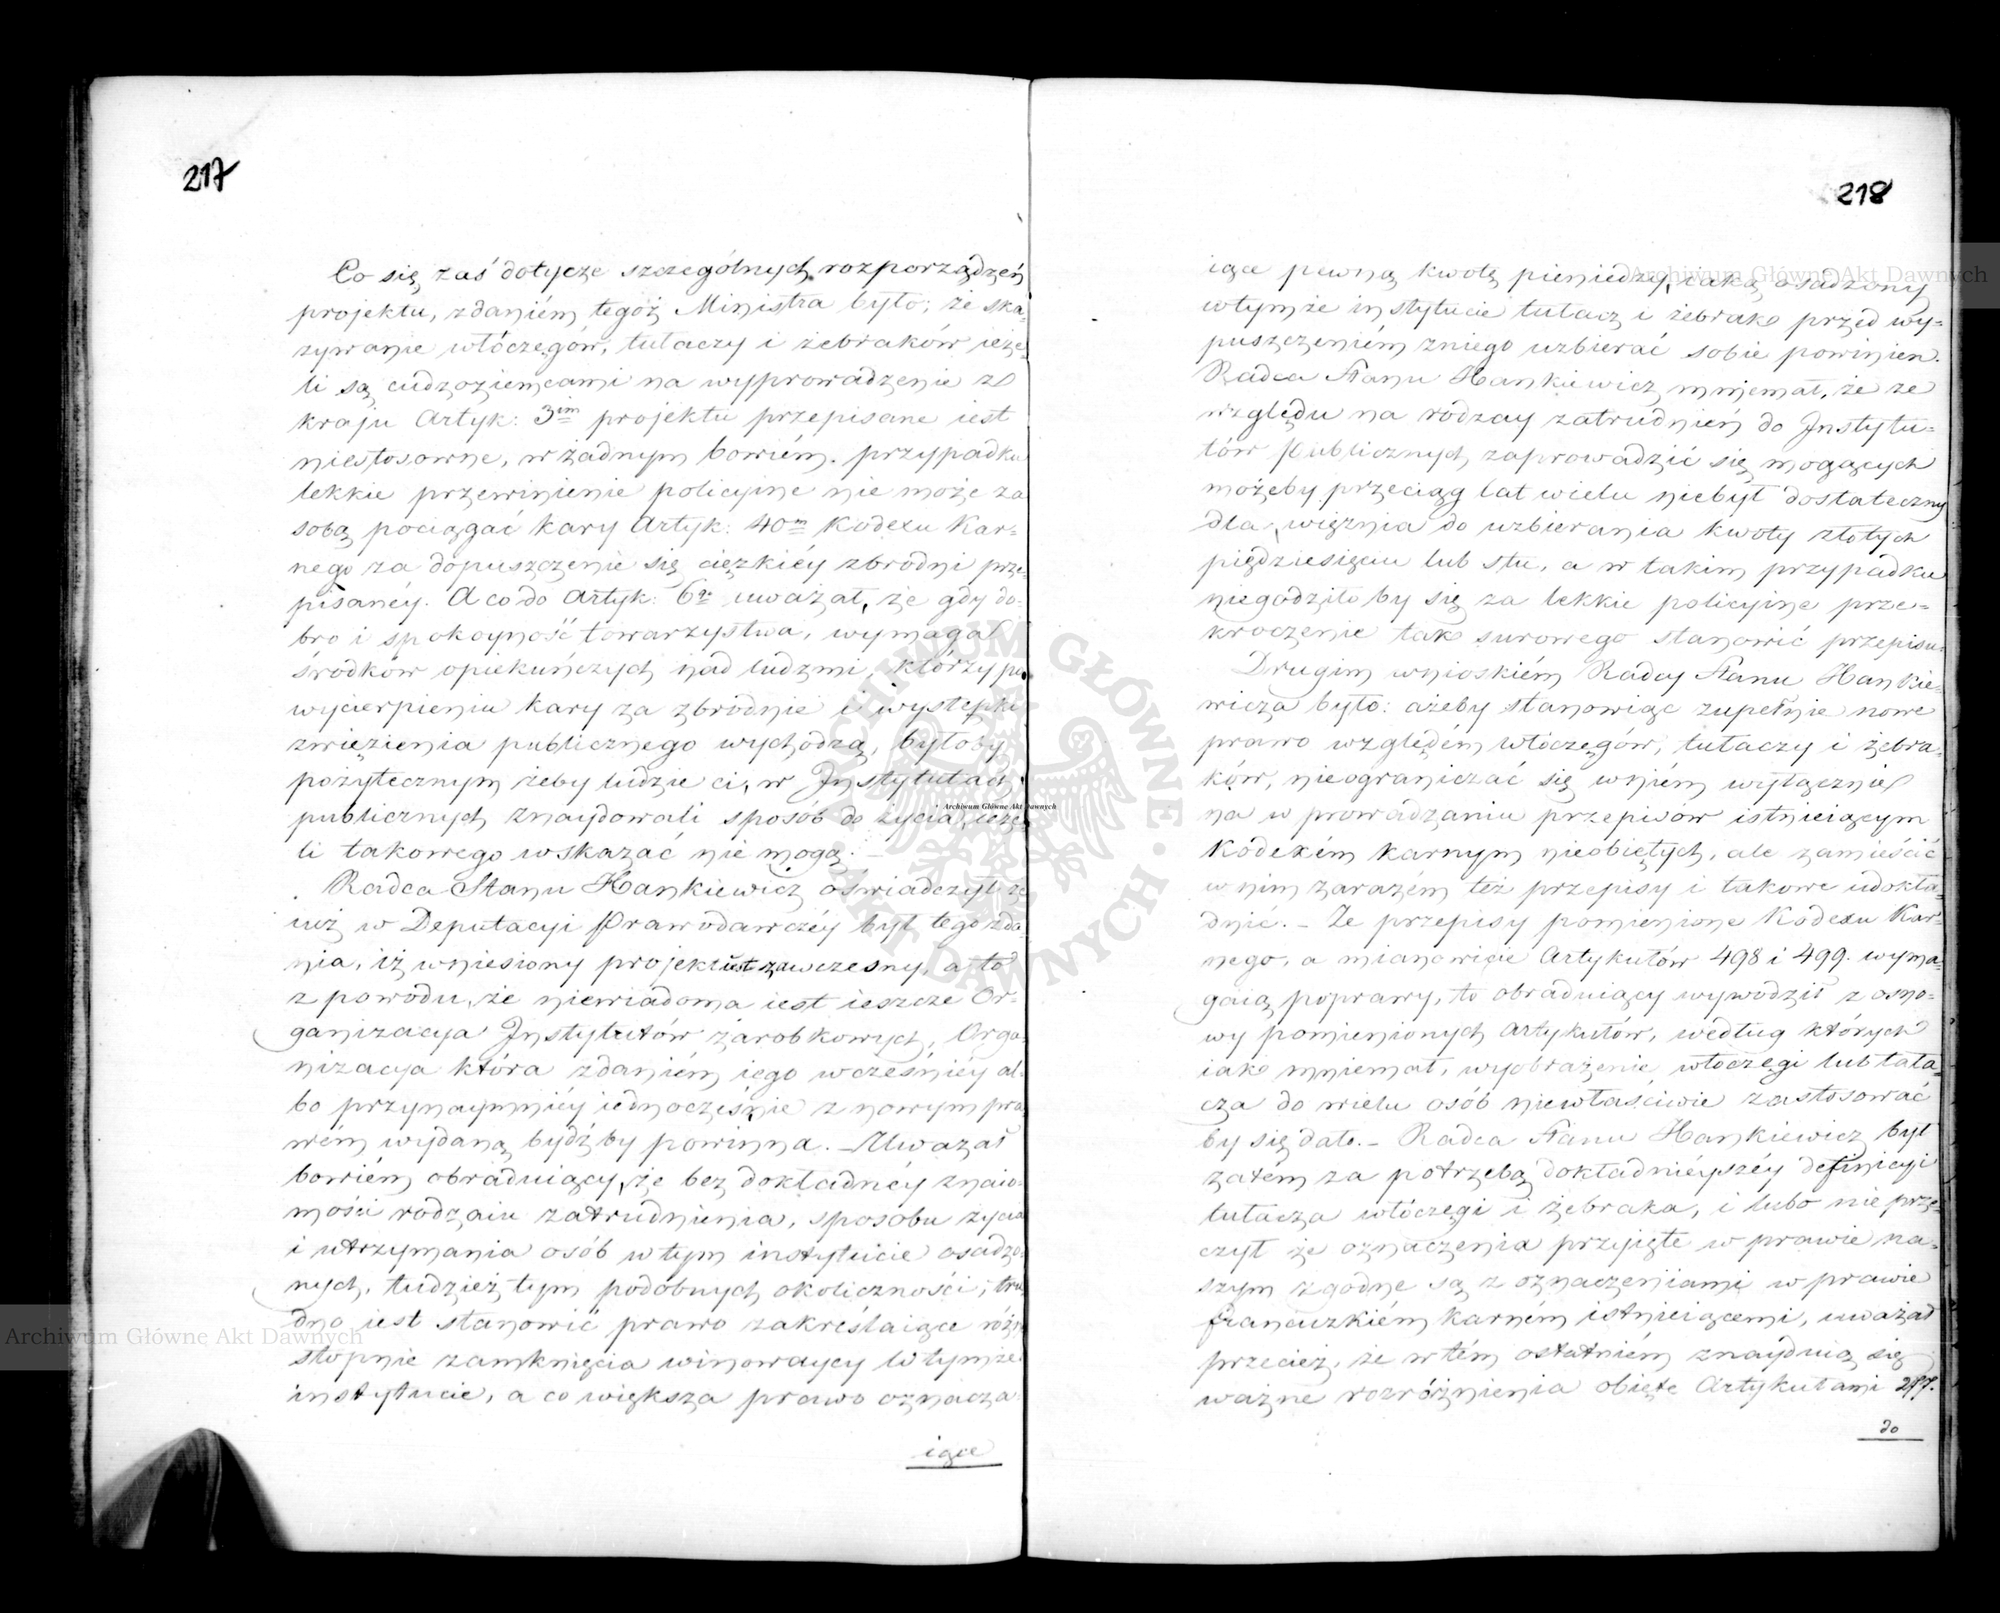 217
Co się zaś dotycze szczególnych rozporządzeń
projektu, zdaniém tegóż Ministra było; że ska-
zywanie włóczęgów, tułaczy i żebraków ieże-
li są cudzoziemcami na wyprowadzenie z
kraju Artyk: 3im projektu przepisane iest
niestosowne, w żadnym bowiém przypadku
lekkie przewinienie policyine nie może za
sobą pociągać kary Artyk: 40m Kodexu Kar-
nego za dopuszczenie się ciężkiéy zbrodni prze-
pisanéy. A co do Artyk: 6o uważał, że gdy do-
bro i spokoyność towarzystwa, wymaga
środków opiekuńczych nad ludzmi, którzy po
wycierpieniu kary za zbrodnie i występki
z więzienia publicznego wychodzą, byłoby
pożytecznym żeby ludzie ci, w Instytutach
publicznych znaydowali sposób do życia, ieże-
li takowego wskazać nie mogą. —
Radca Stanu Hankiewicz oświadczył że
iuż w Deputacyi Prawodawczéy był tego zda-
nia, iż wniesiony projekt iest zawczesny, a to
z powodu, że niewiadoma iest ieszcze Or-
ganizacya Instytutów zarobkowych, Orga-
nizacya która zdaniém iego wcześniéy al-
bo przynaymniéy iednocześnie z nowym pra-
wém wydaną bydźby powinna. — Uważał
bowiém obraduiący, że bez dokładnéy znaio-
mości rodzaiu zatrudnienia, sposobu życia
i utrzymania osób w tym instytucie osadzo-
nych, tudzież tym podobnych okoliczności, tru-
dno iest stanowić prawo zakreślaiące różne
stopnie zamknięcia winowaycy w tymże
instytucie, a co większa prawo oznacza-
iące
218
iące pewną kwotę pieniędzy, iaką osadzony
w tymże instytucie tułacz i żebrak przed wy-
puszczeniém z niego uzbierać sobie powinien.
Radca Stanu Hankiewicz mniemał, że ze
względu na rodzay zatrudnień do Instytu-
tów publicznych zaprowadzić się mogących
możeby przeciąg lat wielu niebył dostateczny
dla więznia do uzbierania kwoty złotych
piędziesięciu lub stu, a w takim przypadku
niegodziłoby się za lekkie policyine prze-
kroczenie tak surowego stanowić przepisu.
Drugim wnioskiém Radcy Stanu Hankie-
wicza było: ażeby stanowiąc zupełnie nowe
prawo względém włóczęgów, tułaczy i żebra-
ków, nieograniczać się w niém wyłącznie
na wprowadzaniu przepisów istnieiącym
Kodexém Karnym nieobiętych, ale zamieścić
w nim zarazém też przepisy i takowe udokła-
dnić. — Że przepisy pomienione Kodexu Kar-
nego, a mianowicie Artykułów 498 i 499. wyma-
gaią poprawy, to obraduiący wywodził z osno-
wy pomienionych Artykułów, według których
iak mniemał, wyobrażenie włóczęgi lub tuła-
cza do wielu osób niewłaściwie zastosować
by się dało. — Radca Stanu Hankiewicz był
zatém za potrzebą dokładnieyszéy definicyi
tułacza włóczęgi i żebraka, i lubo nie prze-
czył że oznaczenia przyięte w prawie na-
szym zgodne są z oznaczeniami w prawie
francuzkiém karném istnieiącemi, uważał
przecież, że w tém ostatniém znayduią się
ważne rozróżnienia obięte Artykułami 277.
do
Archiwum Główne Akt Dawnych
Archiwum Główne Akt Dawnych
Archiwum Główne Akt Dawnych
ARCHIWUM GŁÓWNE AKT DAWNYCH